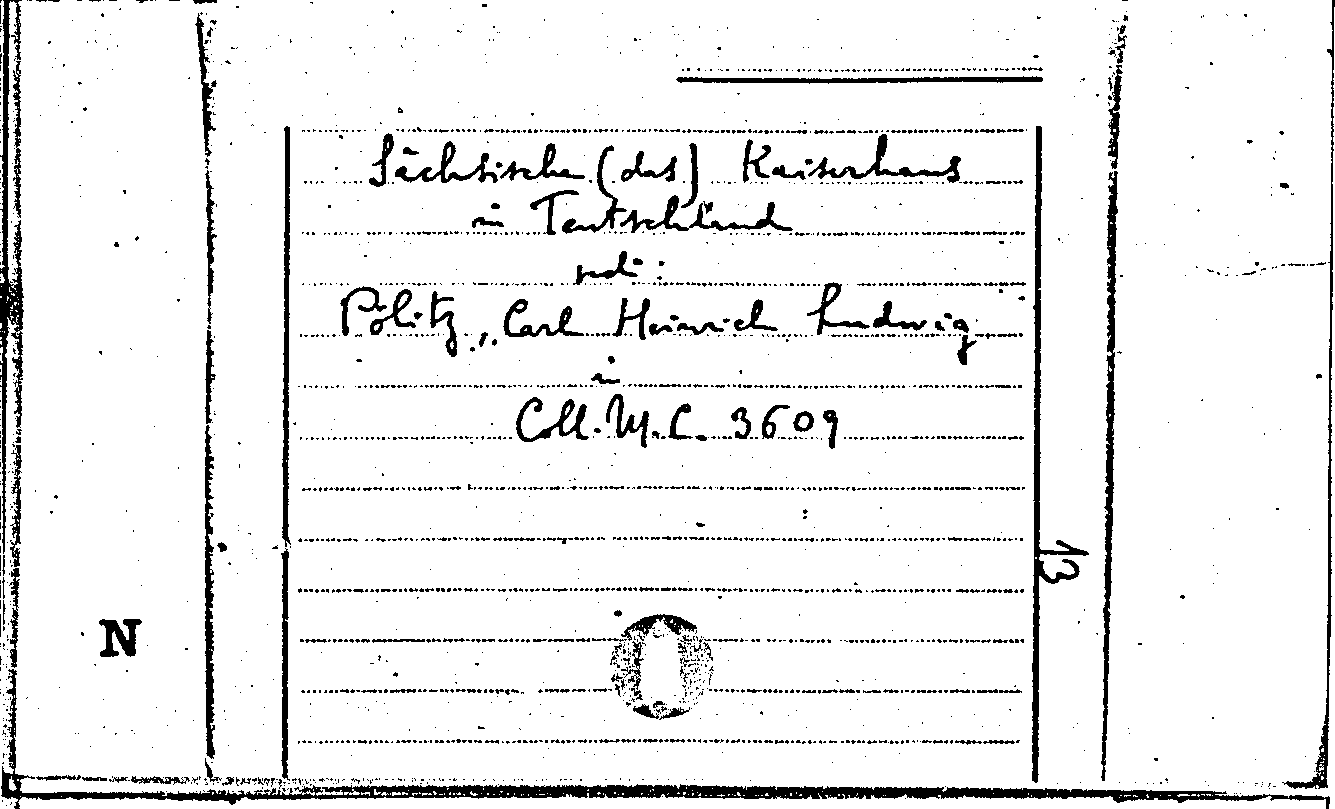 Sächsische (das) Kaiserhaus
in Teutschland
Pölitz, Carl Heinrich Ludwig
in
Coll. M. C. 3609
13
N